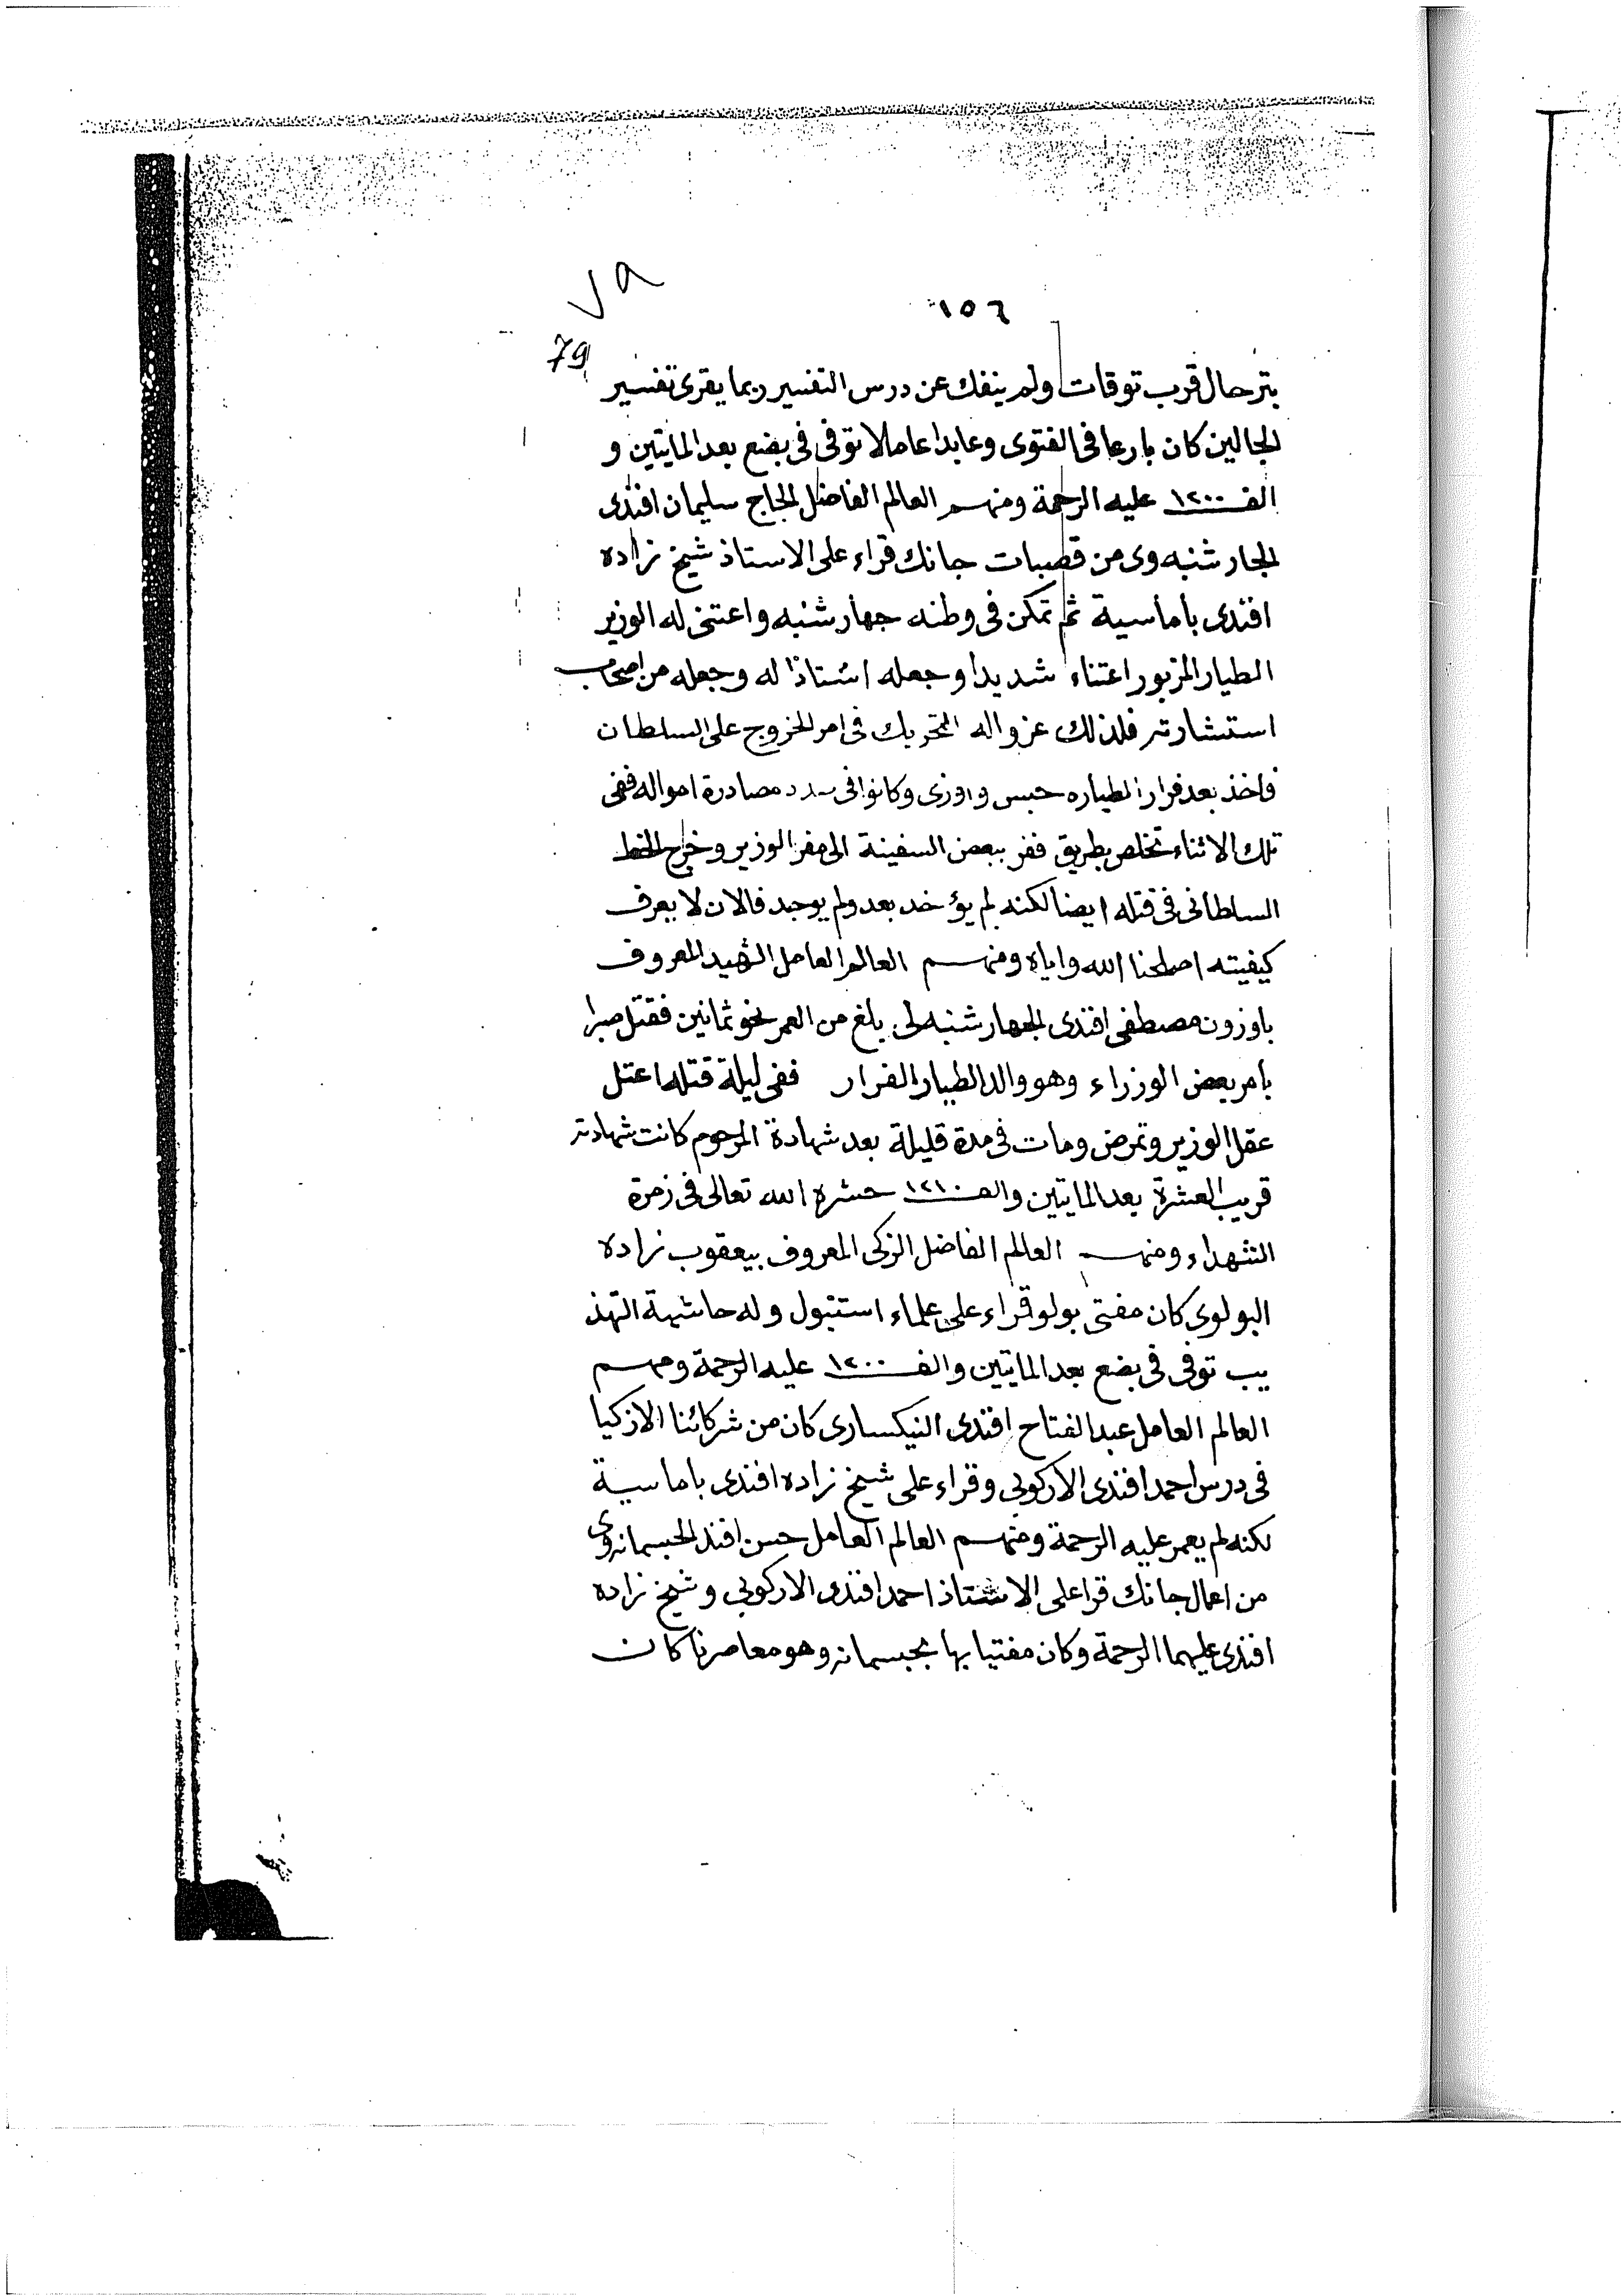 ٧٩
١٥٦
79
بترحال قرب توقات ولم ينفك عن درس التفسير ربما يقرى تفسير
الجالين كان بارعا فى الفتوى وعابدا عاملا توفى فى بضع بعد المايتين و
الف ١٢٠٠ عليه الرحمة ومنهم العالم الفاضل الحاج سليمان افندى
الجارشنبه وى من قصبات جانك قراء على الاستاذ شيخ زاده
افندى بأماسية ثم تمكن فى وطنه جهارشنبه واعتنى له الوزير
الطيار المزبور اعتناء شديدا وجعله استاذا له وجعله من اصحاب
استشارته فلذلك عزوا له التحريك فى امر الخروج على السلطان
فاخذ بعد فرار الطياره حبس واوذى وكانوا فى صدد مصادرة امواله ففى
تلك الاثناء تخلص بطريق ففر ببعض السفينة الى مفر الوزير وخرج الخط
السلطانى فى قتله ايضا لكنه لم يؤخد بعد ولم يوجد فالان لا يعرف
كيفيته اصلحنا الله واياه ومنهم العالم العامل الشهيد المعروف
باوزون مصطفى افندى الجهارشنبه لى بلغ من العمر نحو ثمانين فقتل صبرا
بأمر بعض الوزراء وهو والد الطيار الفرار ففى ليلة قتله اعتل
عقل الوزير وتمرض ومات فى مدة قليلة بعد شهادة المرحوم كانت شهادته
قريب العشرة بعد المايتين والف ١٢١٠ حشره الله تعالى فى زمرة
الشهداء ومنهم العالم الفاضل الزكى المعروف بيعقوب زاده
البولوى كان مفتى بولو قراء على علماء استنبول وله حاشية التهذ
يب توفى فى بضع بعد المايتين والف ١٢٠٠ عليه الرحمة ومنهم
العالم العامل عبد الفتاح افندى النيكسارى كان من شركائنا الازكيا
فى درس احمد افندى الاركوبى وقراء على شيخ زاده افندى باماسية
لكنه لم يعمر عليه الرحمة ومنهم العالم العامل حسن افند
من اعمال جانك قرا على الاستاذ احمد افندى الاركوبى وشيخ زاده
افندى عليهما الرحمة وكان مفتيا بها وهو معاصرنا كان